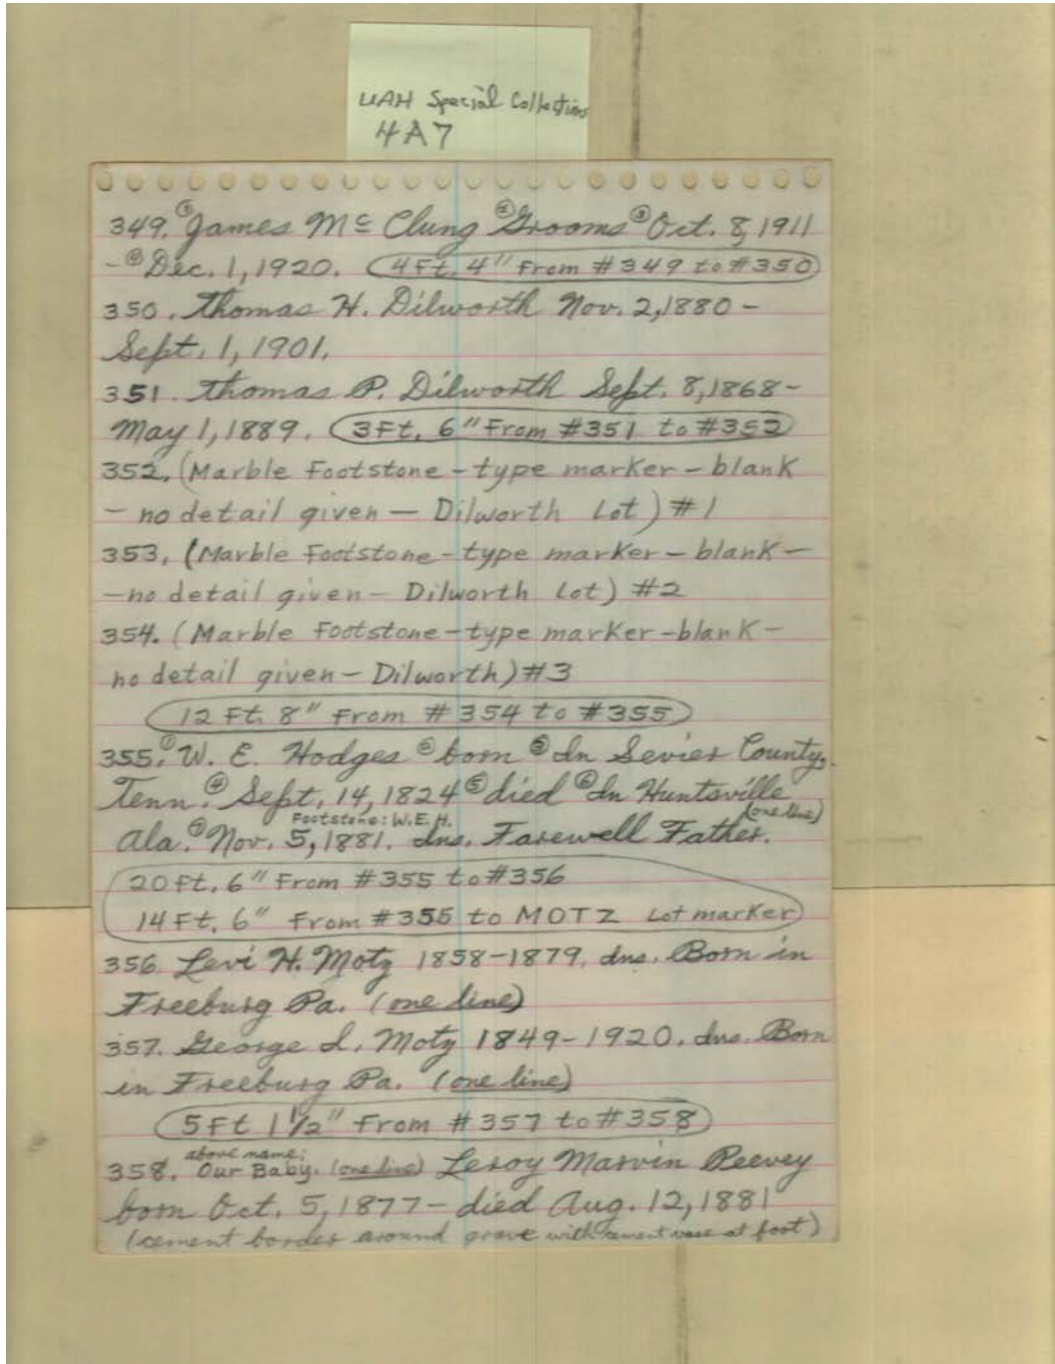 UAH Special Collections
4A7
349. ①James Mc Clung ②Grooms ③Oct. 8, 1911
- ④Dec. 1, 1920. (4Ft. 4" From #349 to #350)
350. Thomas H. Dilworth Nov. 2, 1880 -
Sept. 1, 1901.
351. Thomas P. Dilworth Sept. 8, 1868-
May 1, 1889. (3Ft. 6" From #351 to #352)
352. (Marble Footstone - type marker - blank
- no detail given - Dilworth Lot) #1
353. (Marble Footstone - type marker - blank -
- no detail given - Dilworth Lot) #2
354. (Marble Footstone - type marker - blank -
no detail given - Dilworth) #3
12 Ft. 8" From #354 to #355
355. ①W. E. Hodges ②born ③In Sevier County,
Tenn. ④Sept. 14, 1824 ⑤died ⑥In Huntsville
Footstone: W.E.H. (one line)
Ala. ⑦Nov. 5, 1881. Ins. Farewell Father.
20Ft. 6" From #355 to #356
14Ft. 6" From #355 to MOTZ Lot marker
356. Levi H. Motz 1858-1879. Ins. Born in
Freeburg Pa. (one line)
357. George L. Motz 1849-1920. Ins. Born
in Freeburg Pa. (one line)
5Ft 1 1/2" From #357 to #358
above name:
358. Our Baby. (one line) Leroy Marvin Peevey
born Oct. 5, 1877 - died Aug. 12, 1881
(cement border around grave with cement vase at foot)